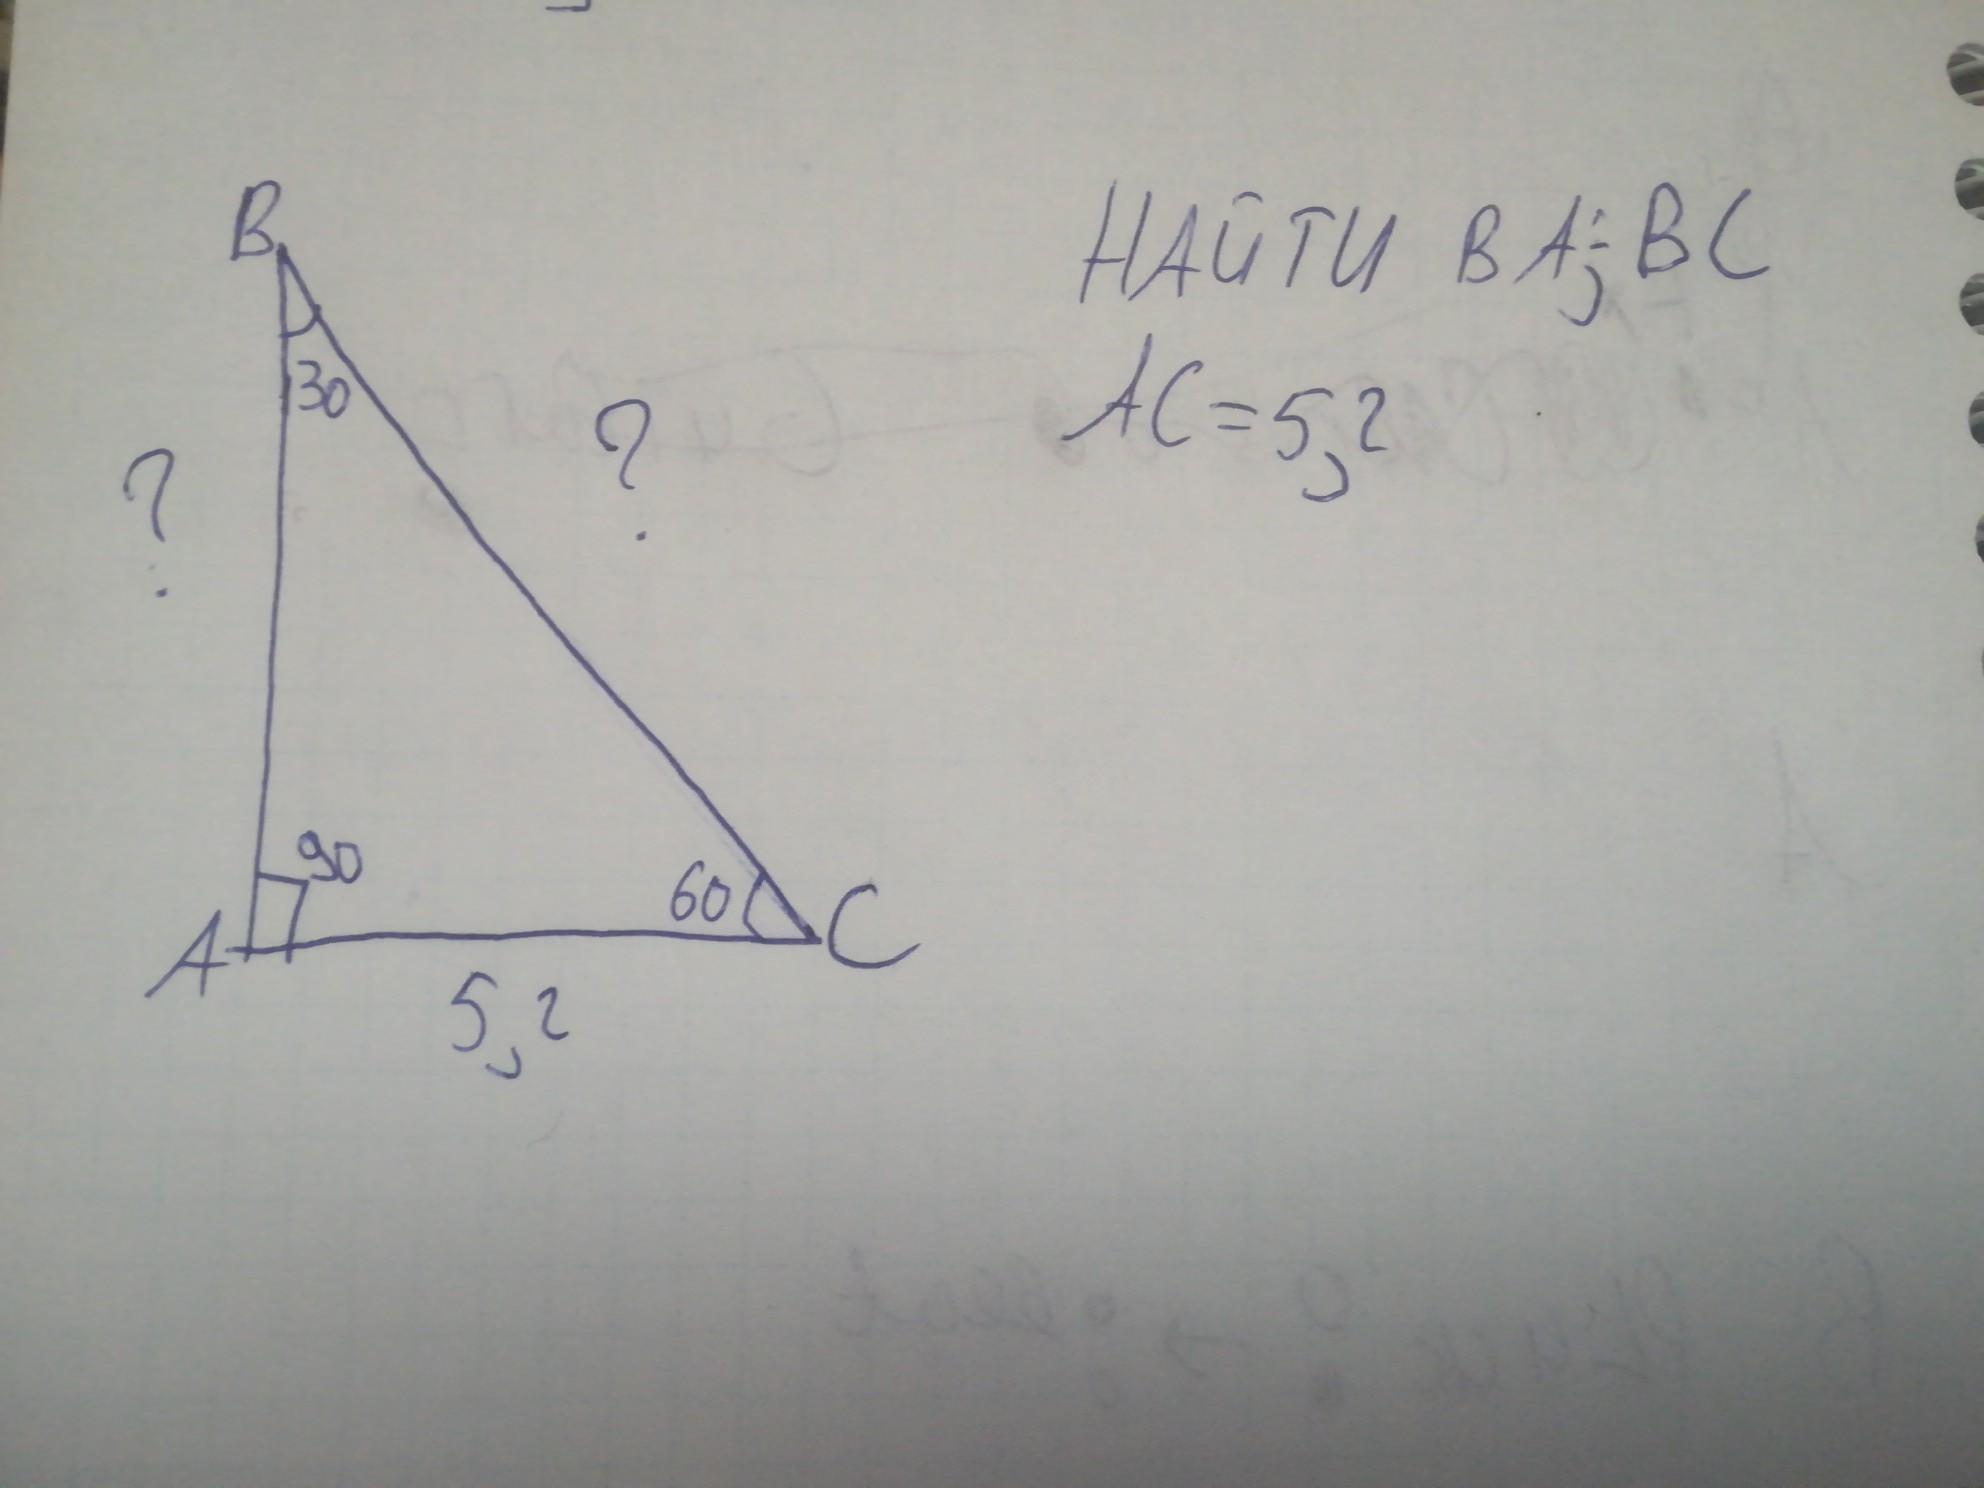 B
НАЙТИ BA; BC
30
AC=5,2
?
?
90
60
A
C
5,2